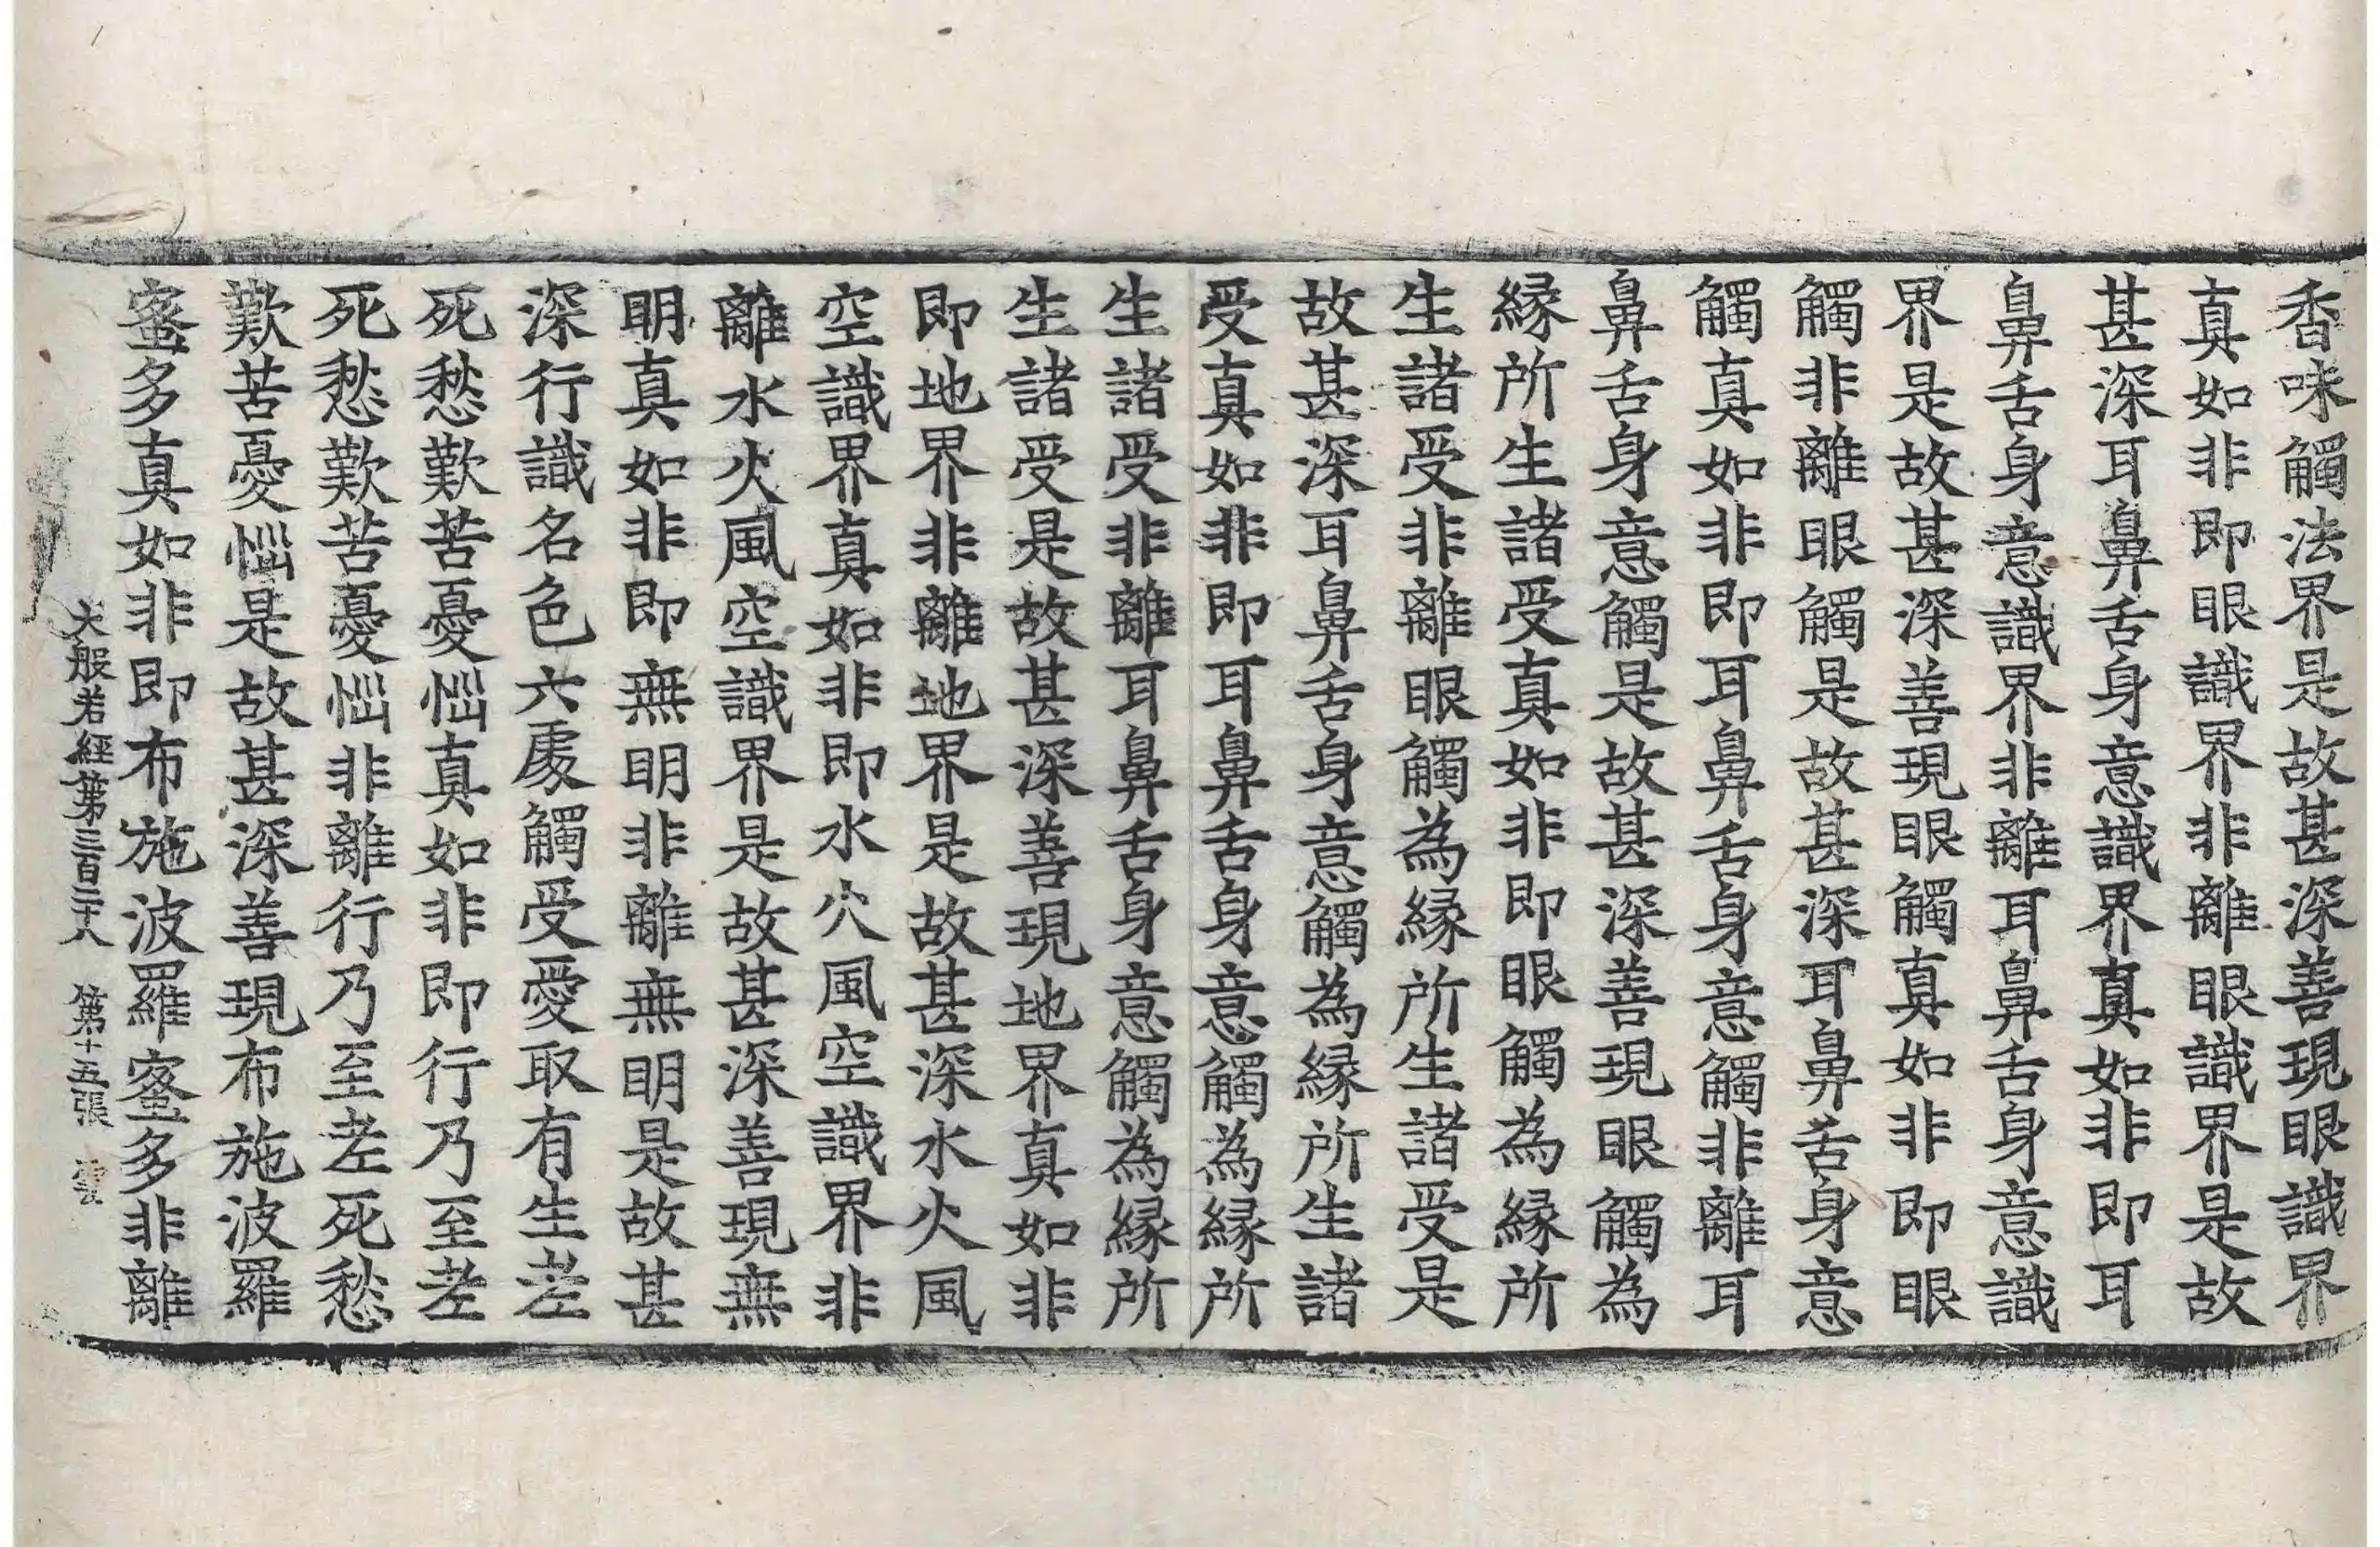 香味觸法界是故甚深善現眼識界
真如非即眼識界非離眼識界是故
甚深耳鼻舌身意識界真如非即耳
鼻舌身意識界非離耳鼻舌身意識
界是故甚深善現眼觸真如非即眼
觸非離眼觸是故甚深耳鼻舌身意
觸真如非即耳鼻舌身意觸非離耳
鼻舌身意觸是故甚深善現眼觸為
緣所生諸受真如非即眼觸為緣所
生諸受非離眼觸為緣所生諸受是
故甚深耳鼻舌身意觸為緣所生諸
受真如非即耳鼻舌身意觸為緣所
生諸受非離耳鼻舌身意觸為緣所
生諸受是故甚深善現地界真如非
即地界非離地界是故甚深水火風
空識界真如非即水火風空識界非
離水火風空識界是故甚深善現無
明真如非即無明非離無明是故甚
深行識名色六處觸受愛取有生老
死愁歎苦憂惱真如非即行乃至老
死愁歎苦憂惱非離行乃至老死愁
歎苦憂惱是故甚深善現布施波羅
蜜多真如非即布施波羅蜜多非離
大般若經第三百二十八 第十五張